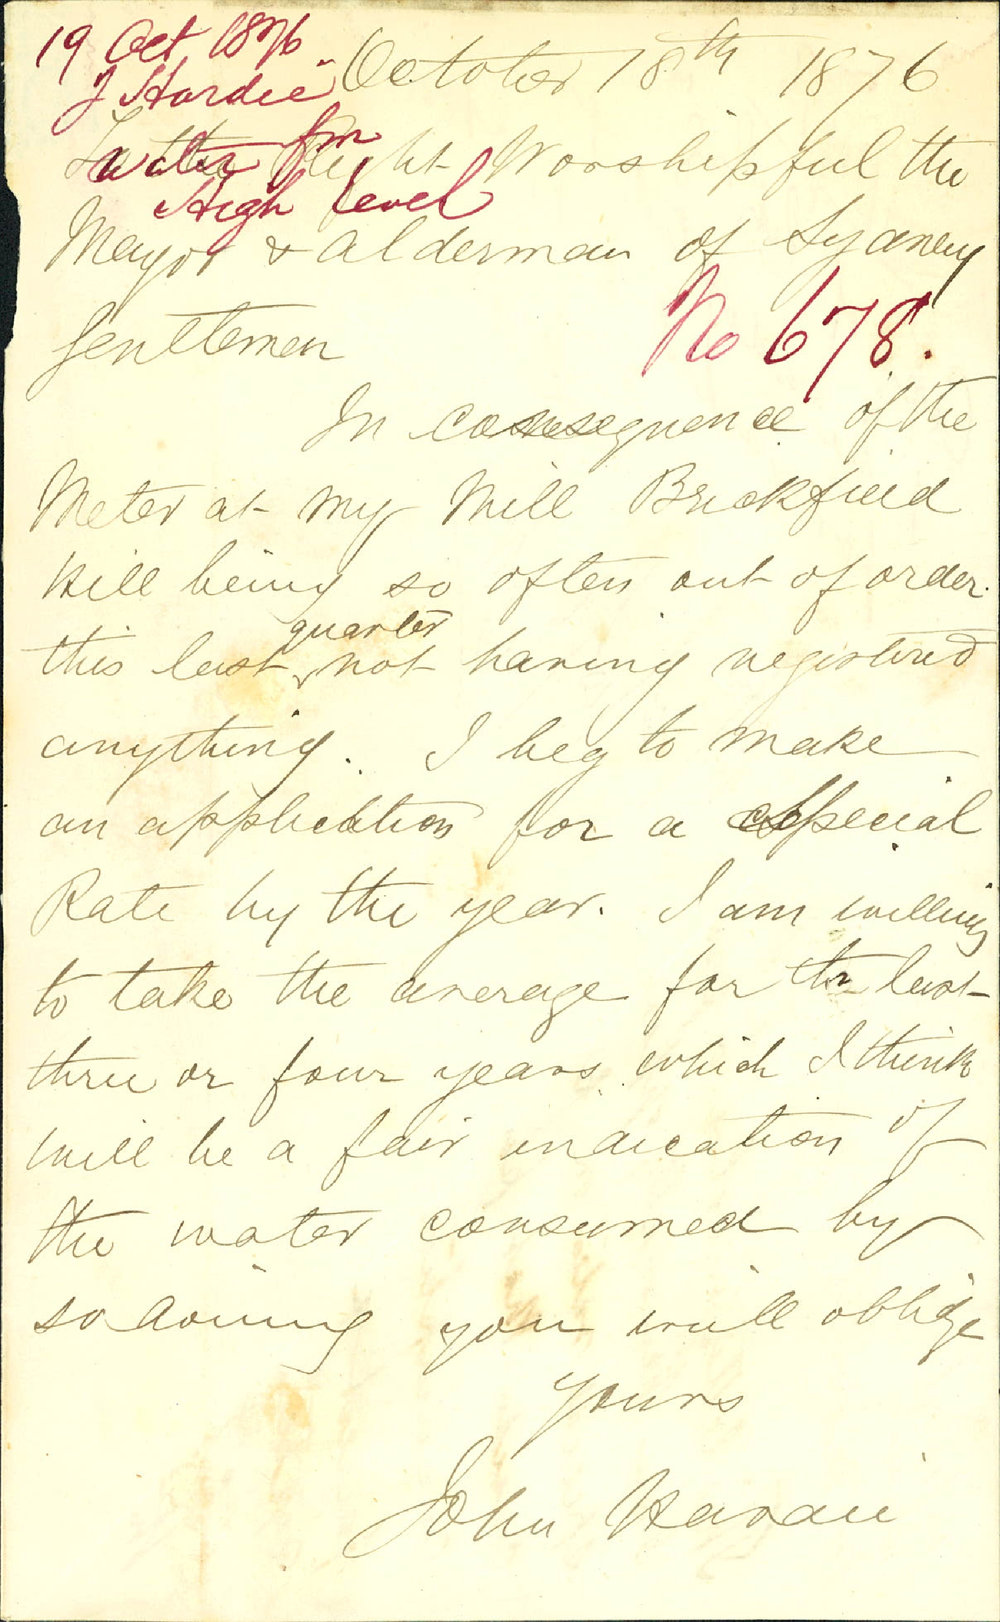 19 Oct 1876
J Hardie
water fm
High level
October 18th 1876
To the Right Worshipful the
Mayor & Alderman of Sydney
No 678.
Gentlemen
In consequence of the
Meter at my Mill Brickfield
Hill being so often out of order
this last quarter not having registered
anything. I beg to make
an application for a Special
Rate by the year. I am willing
to take the average for the last
three or four years which I think
will be a fair indication of
the water consumed by
so doing you will oblige
Yours
John Hardie